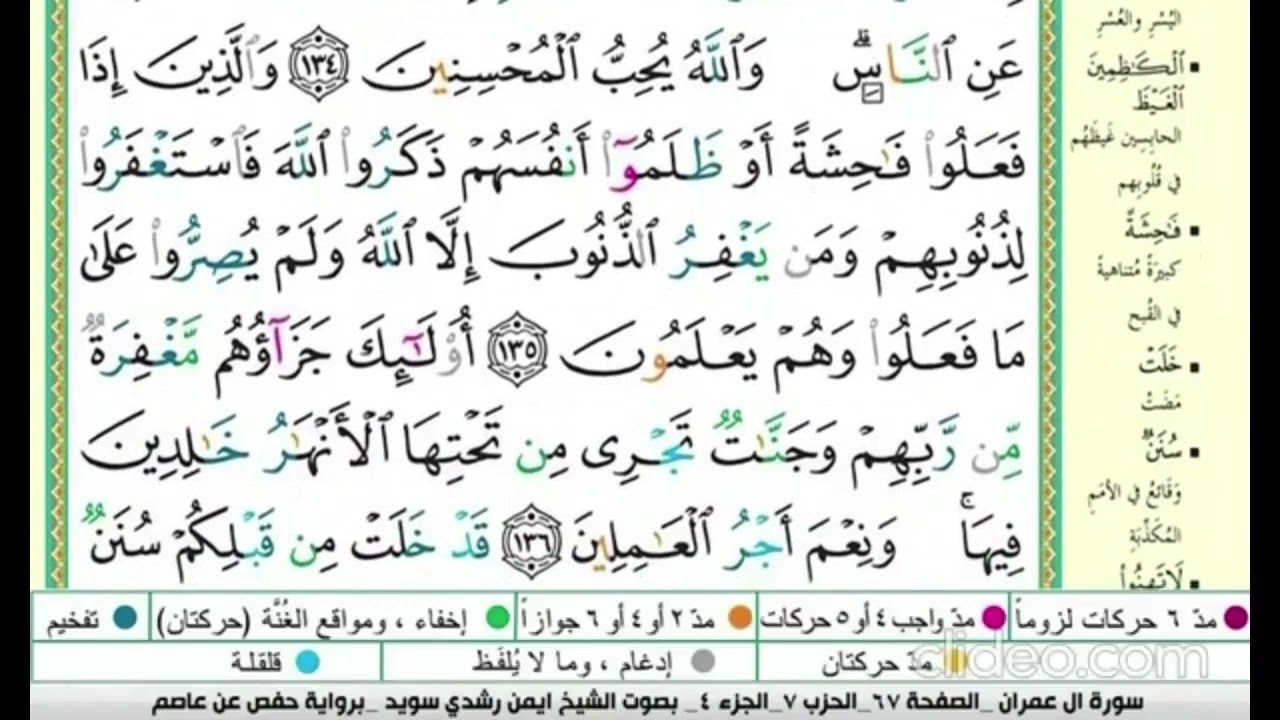 عَنِ ٱلنَّاسِۗ وَٱللَّهُ يُحِبُّ ٱلْمُحْسِنِينَ ١٣٤ وَٱلَّذِينَ إِذَا
فَعَلُوا۟ فَـٰحِشَةً أَوْ ظَلَمُوٓا۟ أَنفُسَهُمْ ذَكَرُوا۟ ٱللَّهَ فَٱسْتَغْفَرُوا۟
لِذُنُوبِهِمْ وَمَن يَغْفِرُ ٱلذُّنُوبَ إِلَّا ٱللَّهُ وَلَمْ يُصِرُّوا۟ عَلَىٰ
مَا فَعَلُوا۟ وَهُمْ يَعْلَمُونَ ١٣٥ أُو۟لَـٰٓئِكَ جَزَآؤُهُم مَّغْفِرَةٌ
مِّن رَّبِّهِمْ وَجَنَّـٰتٌ تَجْرِى مِن تَحْتِهَا ٱلْأَنْهَـٰرُ خَـٰلِدِينَ
فِيهَاۚ وَنِعْمَ أَجْرُ ٱلْعَـٰمِلِينَ ١٣٦ قَدْ خَلَتْ مِن قَبْلِكُمْ سُنَنٌ
اليُسْرِ والعُسْرِ
ٱلْكَـٰظِمِينَ
ٱلْغَيْظَ
الحابِسين غَيظَهُم
في قُلُوبِهم
فَـٰحِشَةً
كبيرَةً مُتناهيةً
في القُبح
خَلَتْ
مَضَتْ
سُنَنٌ
وَقَائعُ في الأمَمِ
المُكَذِّبَةِ
لَا تَهِنُوا۟
مدّ ٦ حركات لزوماً
مدّ واجب ٤ أو ٥ حركات
مدّ ٢ أو ٤ أو ٦ جوازاً
إخفاء ، ومواقع الغُنَّة (حركتان)
تفخيم
مدّ حركتان
إدغام ، وما لا يُلفَظ
قلقلة
clideo.com
سورة ال عمران _الصفحة ٦٧_الحزب ٧_الجزء ٤_ بصوت الشيخ ايمن رشدي سويد _برواية حفص عن عاصم